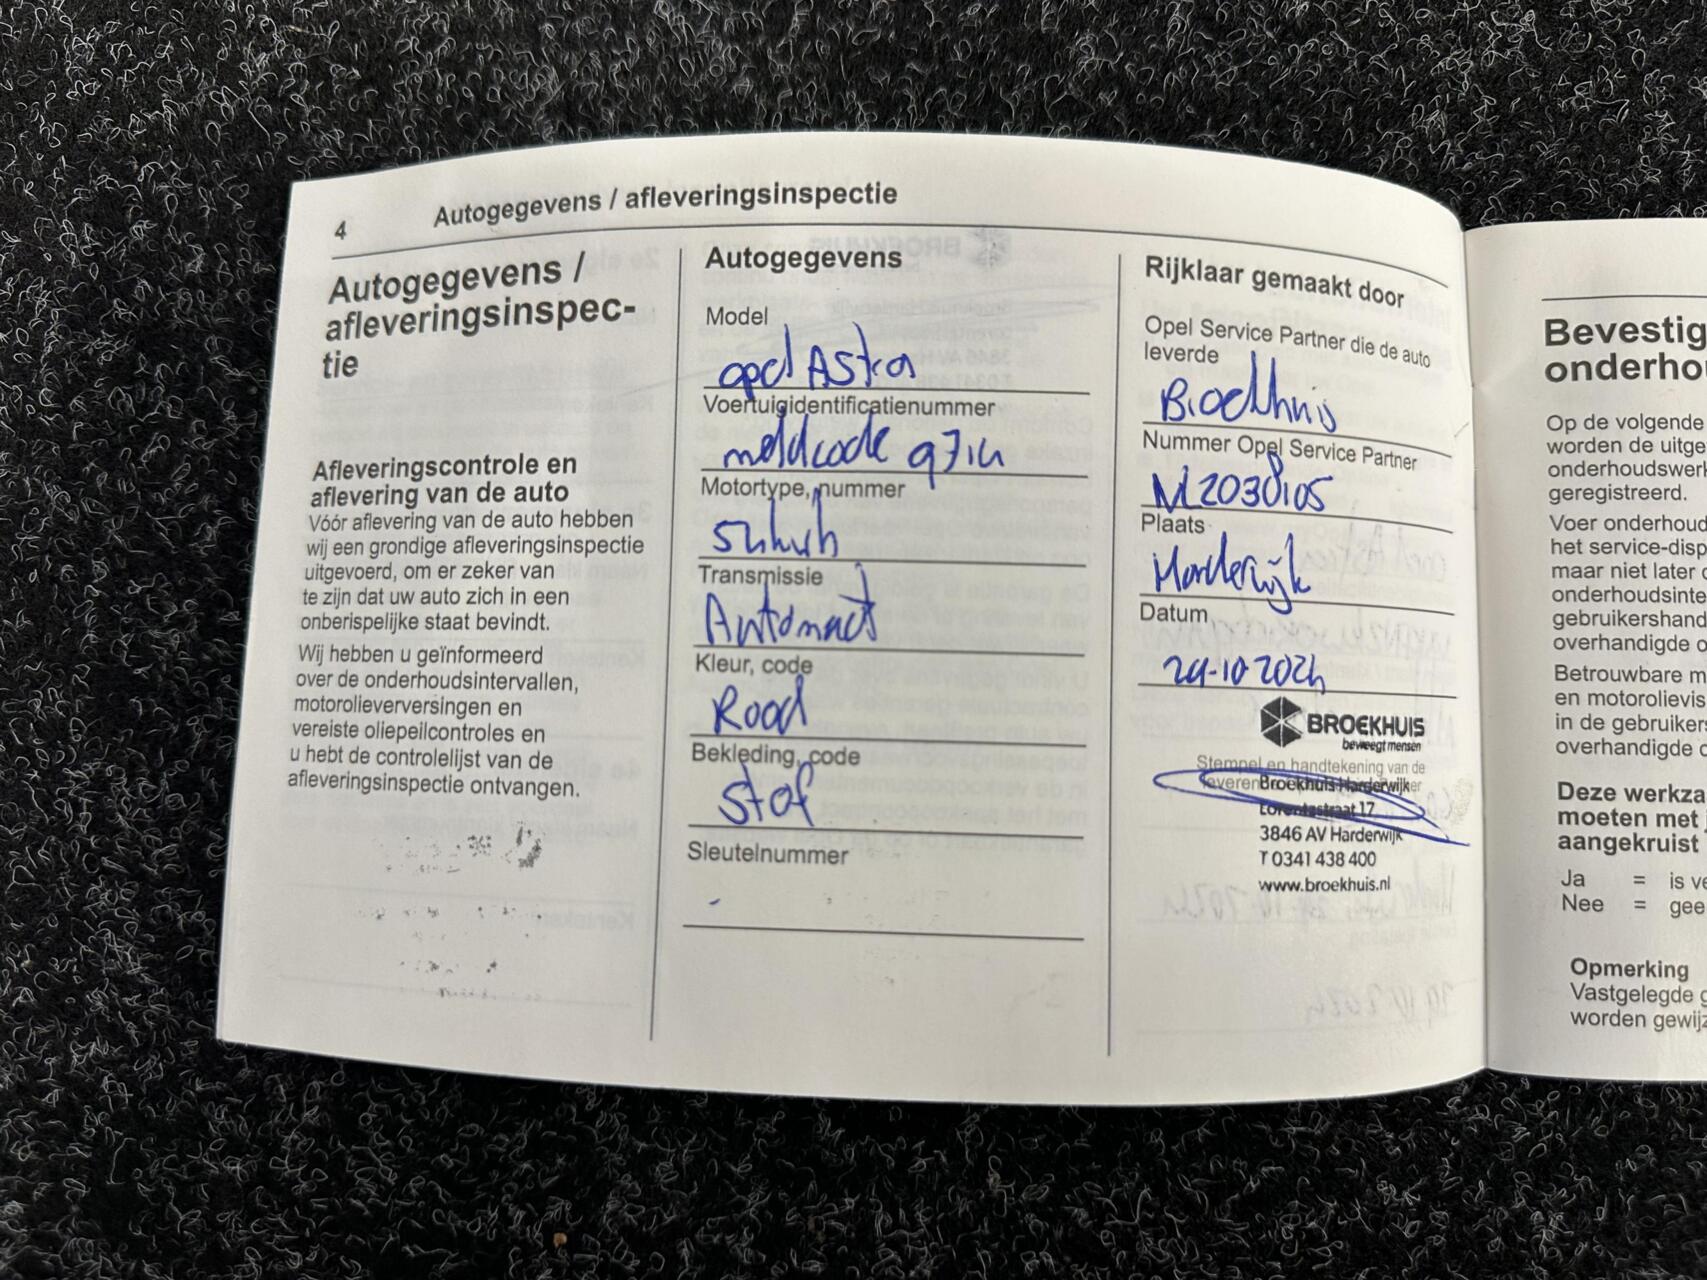 4
Autogegevens / afleveringsinspectie
Autogegevens /
afleveringsinspec-
tie
Afleveringscontrole en
aflevering van de auto
Vóór aflevering van de auto hebben
wij een grondige afleveringsinspectie
uitgevoerd, om er zeker van
te zijn dat uw auto zich in een
onberispelijke staat bevindt.
Wij hebben u geïnformeerd
over de onderhoudsintervallen,
motorolieverversingen en
vereiste oliepeilcontroles en
u hebt de controlelijst van de
afleveringsinspectie ontvangen.
Autogegevens
Model
opel Astra
Voertuigidentificatienummer
meldcode
Motortype, nummer
Transmissie
Automaat
Kleur, code
Rood
Bekleding, code
Stof
Sleutelnummer
-
Rijklaar gemaakt door
Opel Service Partner die de auto
leverde
Broekhuis
Nummer Opel Service Partner
NL2038105
Plaats
Harderwijk
Datum
29-10-2024
BROEKHUIS
beweegt mensen
Stempel en handtekening van de
Broekhuis Harderwijk
Lorentzstraat 17
3846 AV Harderwijk
T 0341 438 400
www.broekhuis.nl
Bevestig
onderhou
Op de volgende
worden de uitge
onderhoudswerk
geregistreerd.
Voer onderhoud
het service-disp
maar niet later d
onderhoudsinte
gebruikershand
overhandigde o
Betrouwbare m
en motorolievis
in de gebruikers
overhandigde o
Deze werkza
moeten met j
aangekruist
Ja = is ve
Nee = gee
Opmerking
Vastgelegde g
worden gewijz